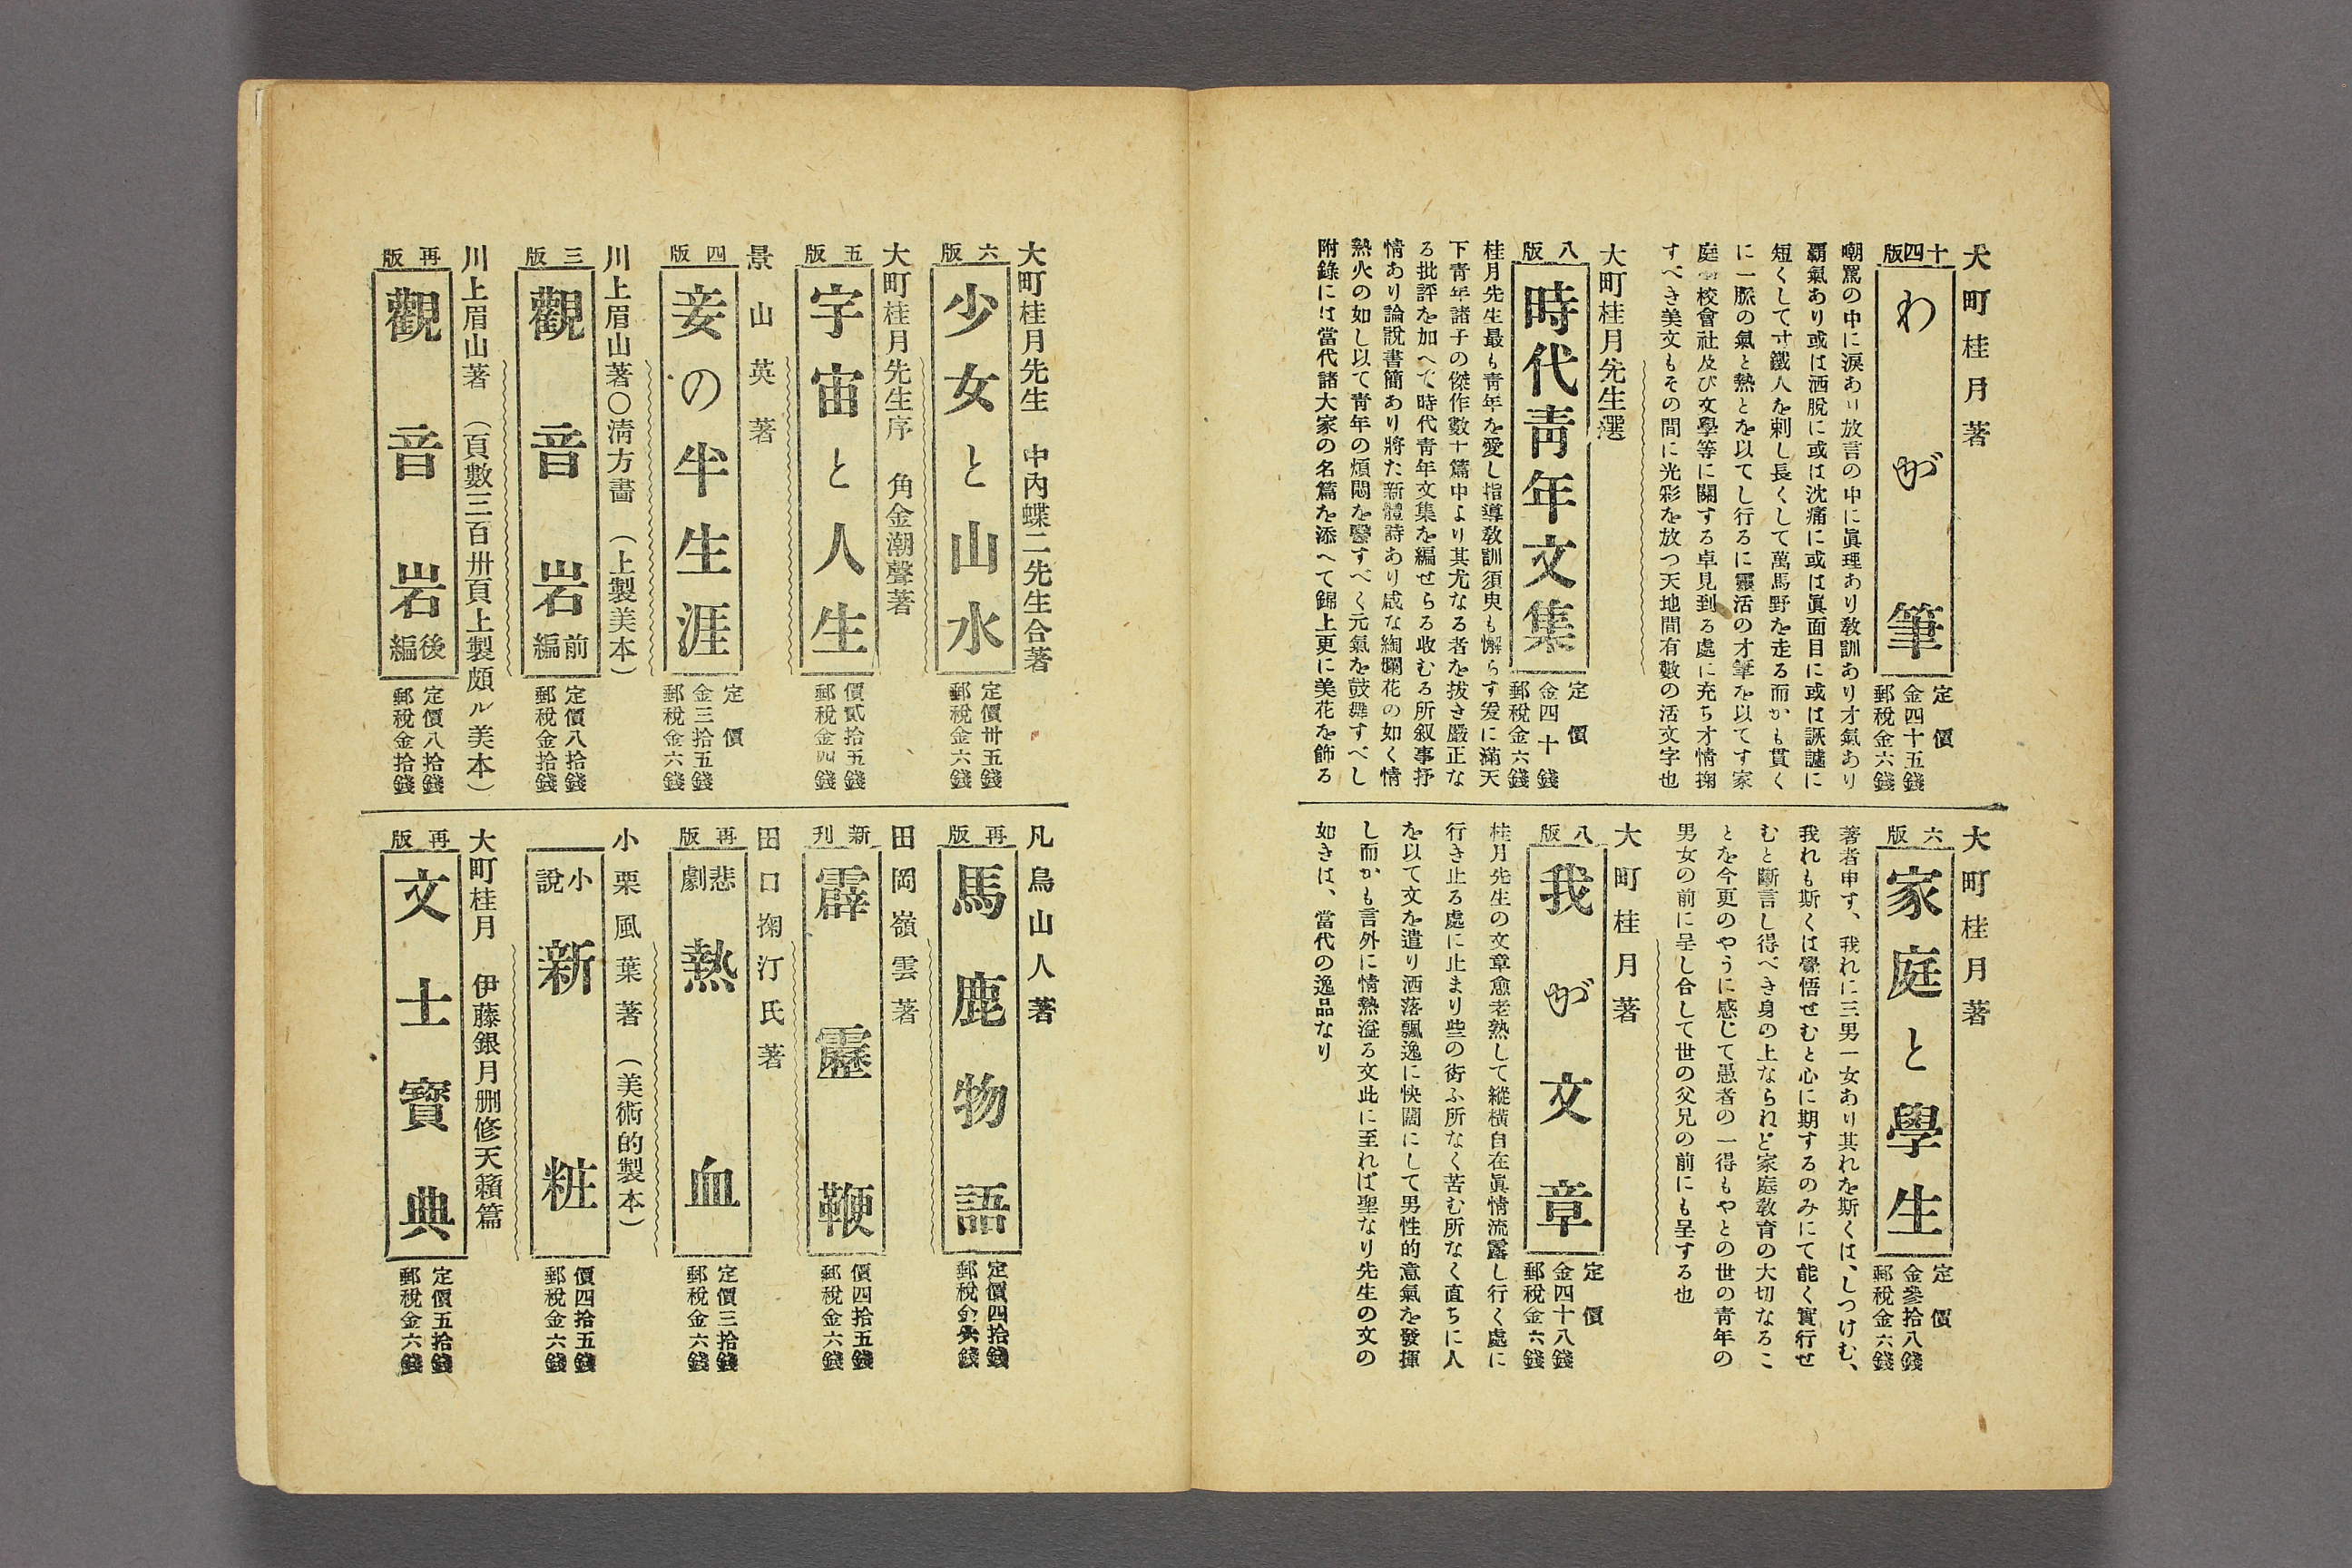 大町桂月著
十四版
わが筆
定價
金四十五錢
郵税金六錢
嘲罵の中に涙あり放言の中に眞理あり敎訓あり才氣あり
覇氣あり或は洒脫に或は沈痛に或は眞面目に或は諏謔に
短くして寸鐵人を刺し長くして萬馬野を走る而かも貫く
に一脈の氣と熱とを以てし行るに靈活の才筆を以てす家
庭學校會社及び文學等に關する卓見到る處に充ち才情掬
すべき美文もその間に光彩を放つ天地間有數の活文字也
大町桂月先生選
八版
時代靑年文集
定價
金四十錢
郵税金六錢
桂月先生最も靑年を愛し指導敎訓須臾も懈らす爰に滿天
下靑年諸子の傑作數十篇中より其尤なる者を拔き嚴正な
る批評を加へて時代靑年文集を編せらる收むる所叙事抒
情あり論說書簡あり將た新體詩あり咸な絢爛花の如く情
熱火の如し以て靑年の煩悶を醫すべく元氣を鼓舞すべし
附錄には當代諸大家の名篇を添へて錦上更に美花を飾る
大町桂月著
六版
家庭と學生
定價
金參拾八錢
郵税金六錢
著者申す、我れに三男一女あり其れを斯くは、しつけむ、
我れも斯くは覺悟せむと心に期するのみにて能く實行せ
むと斷言し得べき身の上ならねど家庭敎育の大切なるこ
とを今更のやうに感じて愚者の一得もやとの世の靑年の
男女の前に呈し合して世の父兄の前にも呈する也
大町桂月著
八版
我が文章
定價
金四十八錢
郵税金六錢
桂月先生の文章愈老熟して縱橫自在眞情流露し行く處に
行き止る處に止まり些の衒ふ所なく苦む所なく直ちに人
を以て文を遣り洒落飄逸に快闊にして男性的意氣を發揮
し而かも言外に情熱溢る文此に至れば聖なり先生の文の
如きは、當代の逸品なり
大町桂月先生 中內蝶二先生合著
六版
少女と山水
定價卅五錢
郵税金六錢
大町桂月先生序 角金潮聲著
五版
宇宙と人生
價貳拾五錢
郵税金四錢
景山英著
四版
妾の半生涯
定價
金三拾五錢
郵税金六錢
川上眉山著〇淸方畵 (上製美本)
三版
觀音岩 前編
定價八拾錢
郵税金拾錢
川上眉山著 (頁數三百卅頁上製頗ル美本)
再版
觀音岩 後編
定價八拾錢
郵税金拾錢
凡鳥山人著
再版
馬鹿物語
定價四拾錢
郵税金六錢
田岡嶺雲著
新刊
霹靂鞭
價四拾五錢
郵税金六錢
田口掬汀氏著
再版
悲劇 熱血
定價三拾錢
郵税金六錢
小栗風葉著 (美術的製本)
小說 新粧
價四拾五錢
郵税金六錢
大町桂月 伊藤銀月刪修天籟篇
再版
文士寶典
定價五拾錢
郵税金六錢